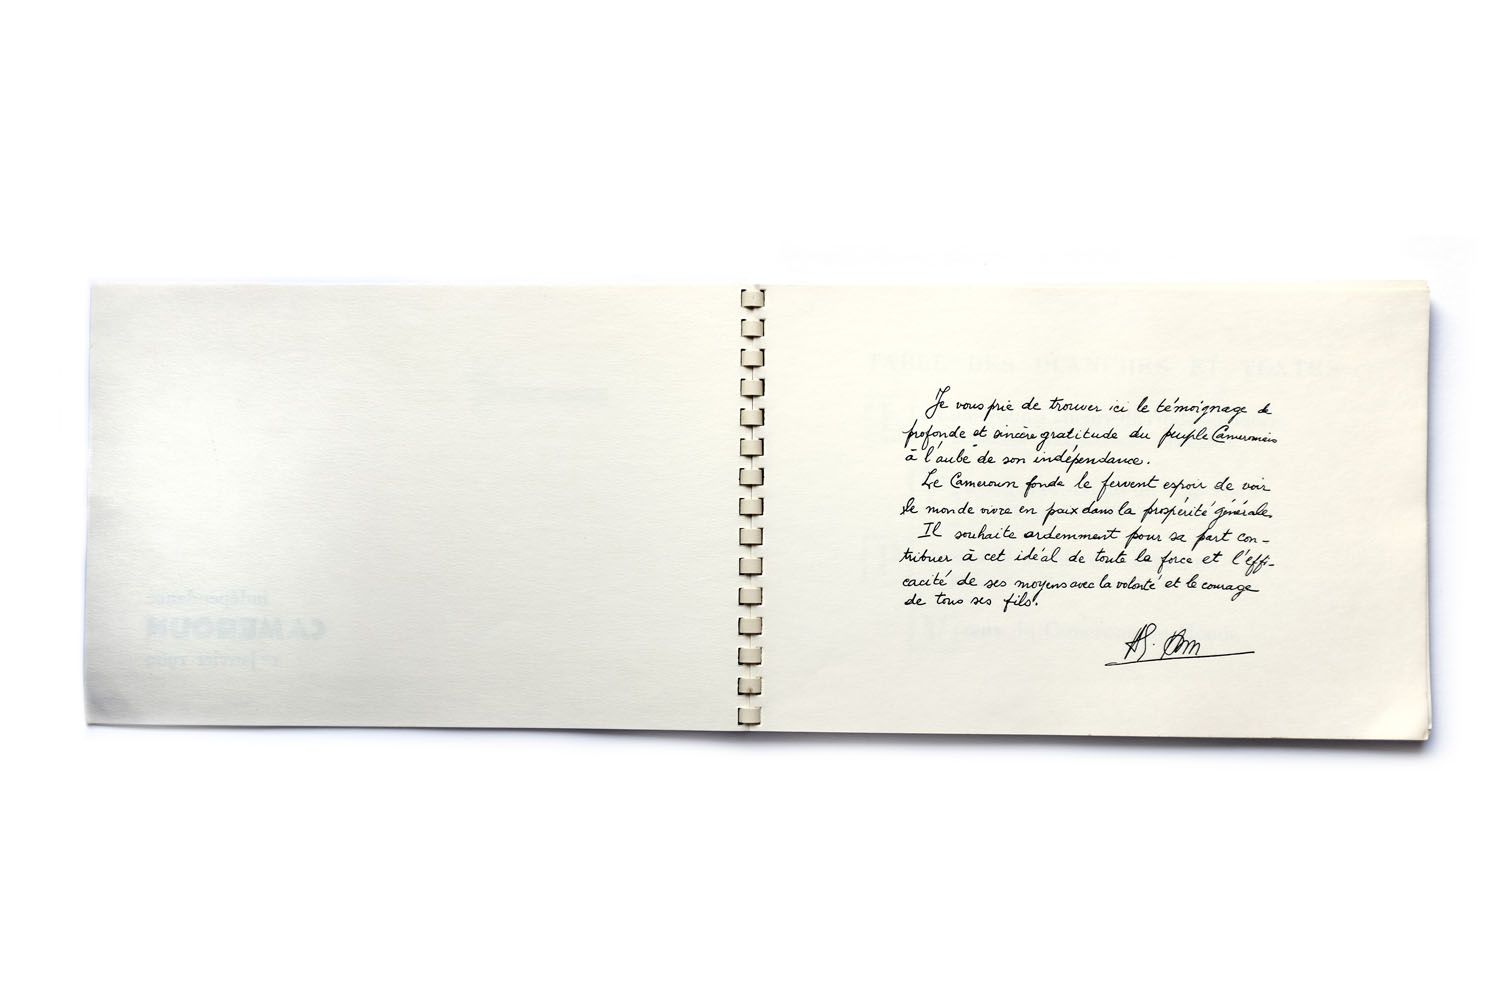 Indépendance
CAMEROUN
1er Janvier 1960
TABLE DES PLANCHES ET TEXTES
Je vous prie de trouver ici le témoignage de
profonde et sincère gratitude du peuple Camerounais
à l'aube de son indépendance.
Le Cameroun fonde le fervent espoir de voir
le monde vivre en paix dans la prospérité générale.
Il souhaite ardemment pour sa part con-
tribuer à cet idéal de toute la force et l'effi-
cacité de ses moyens avec la volonté et le courage
de tous ses fils.